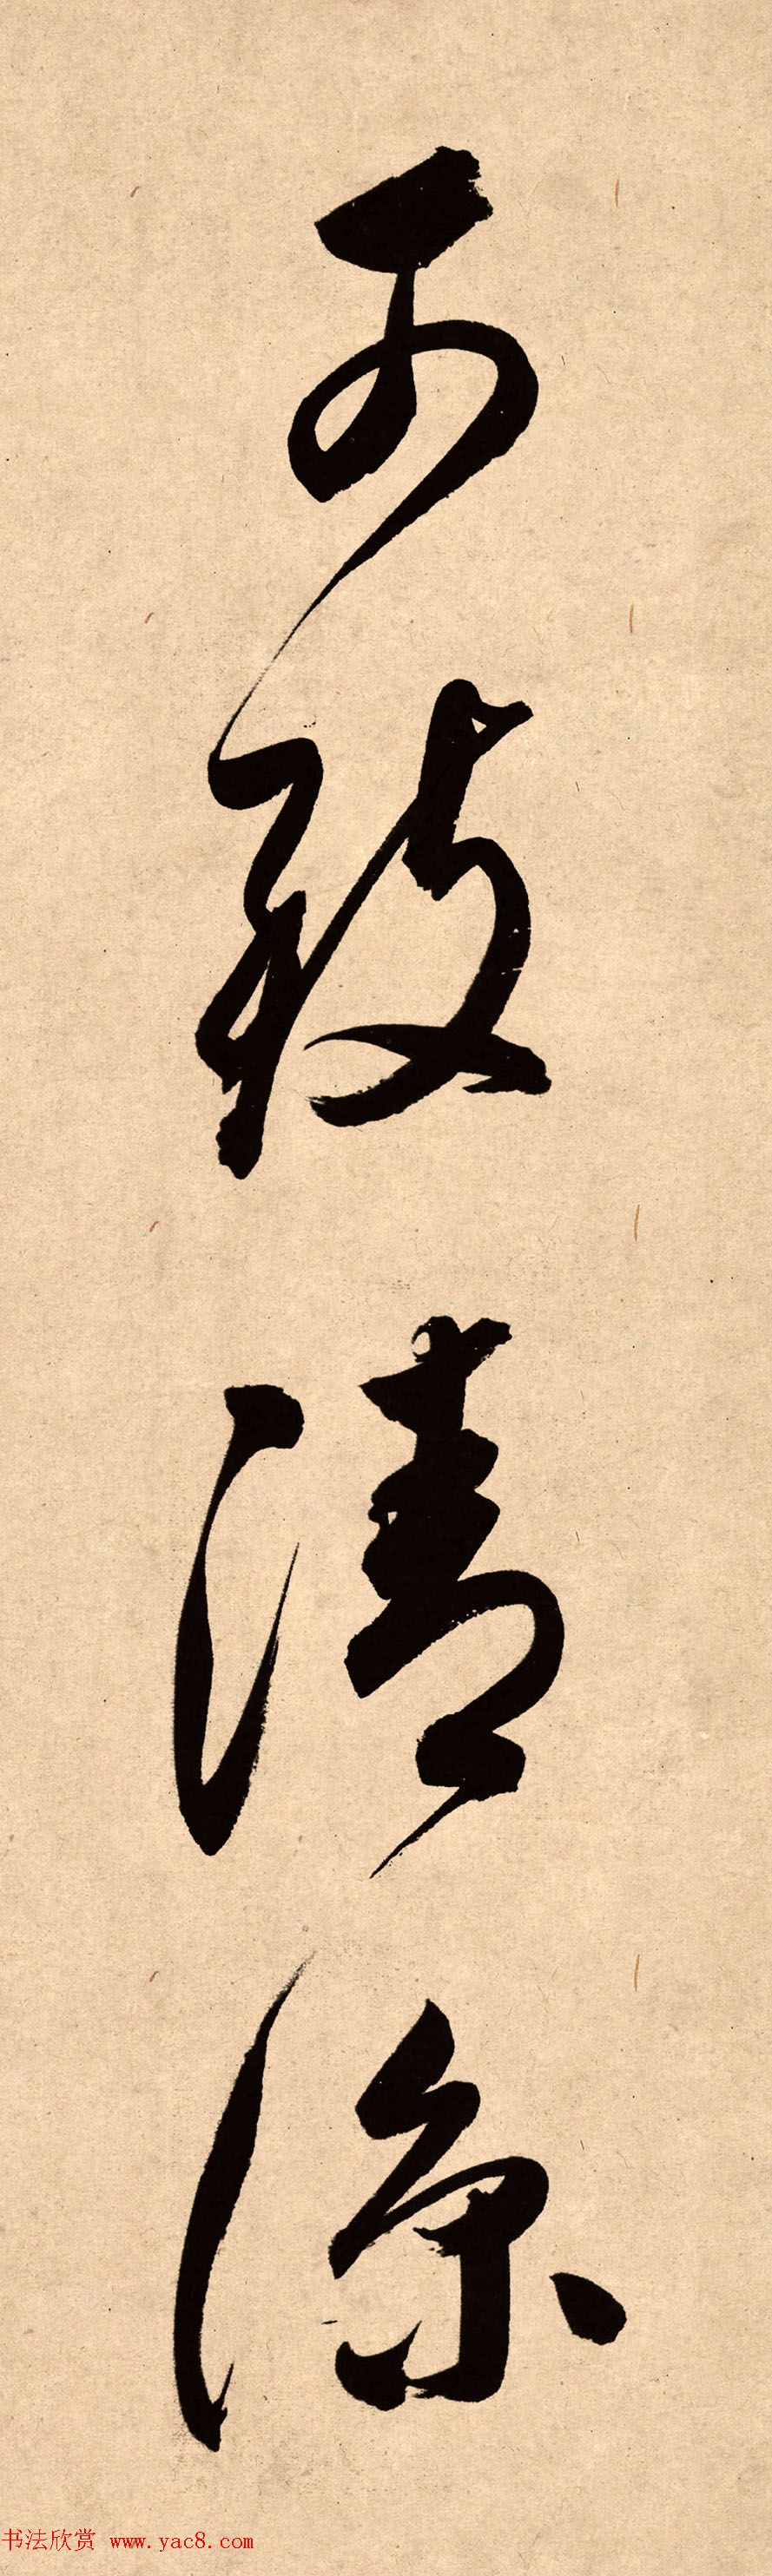 可致清涼
书法欣赏 www.yac8.com